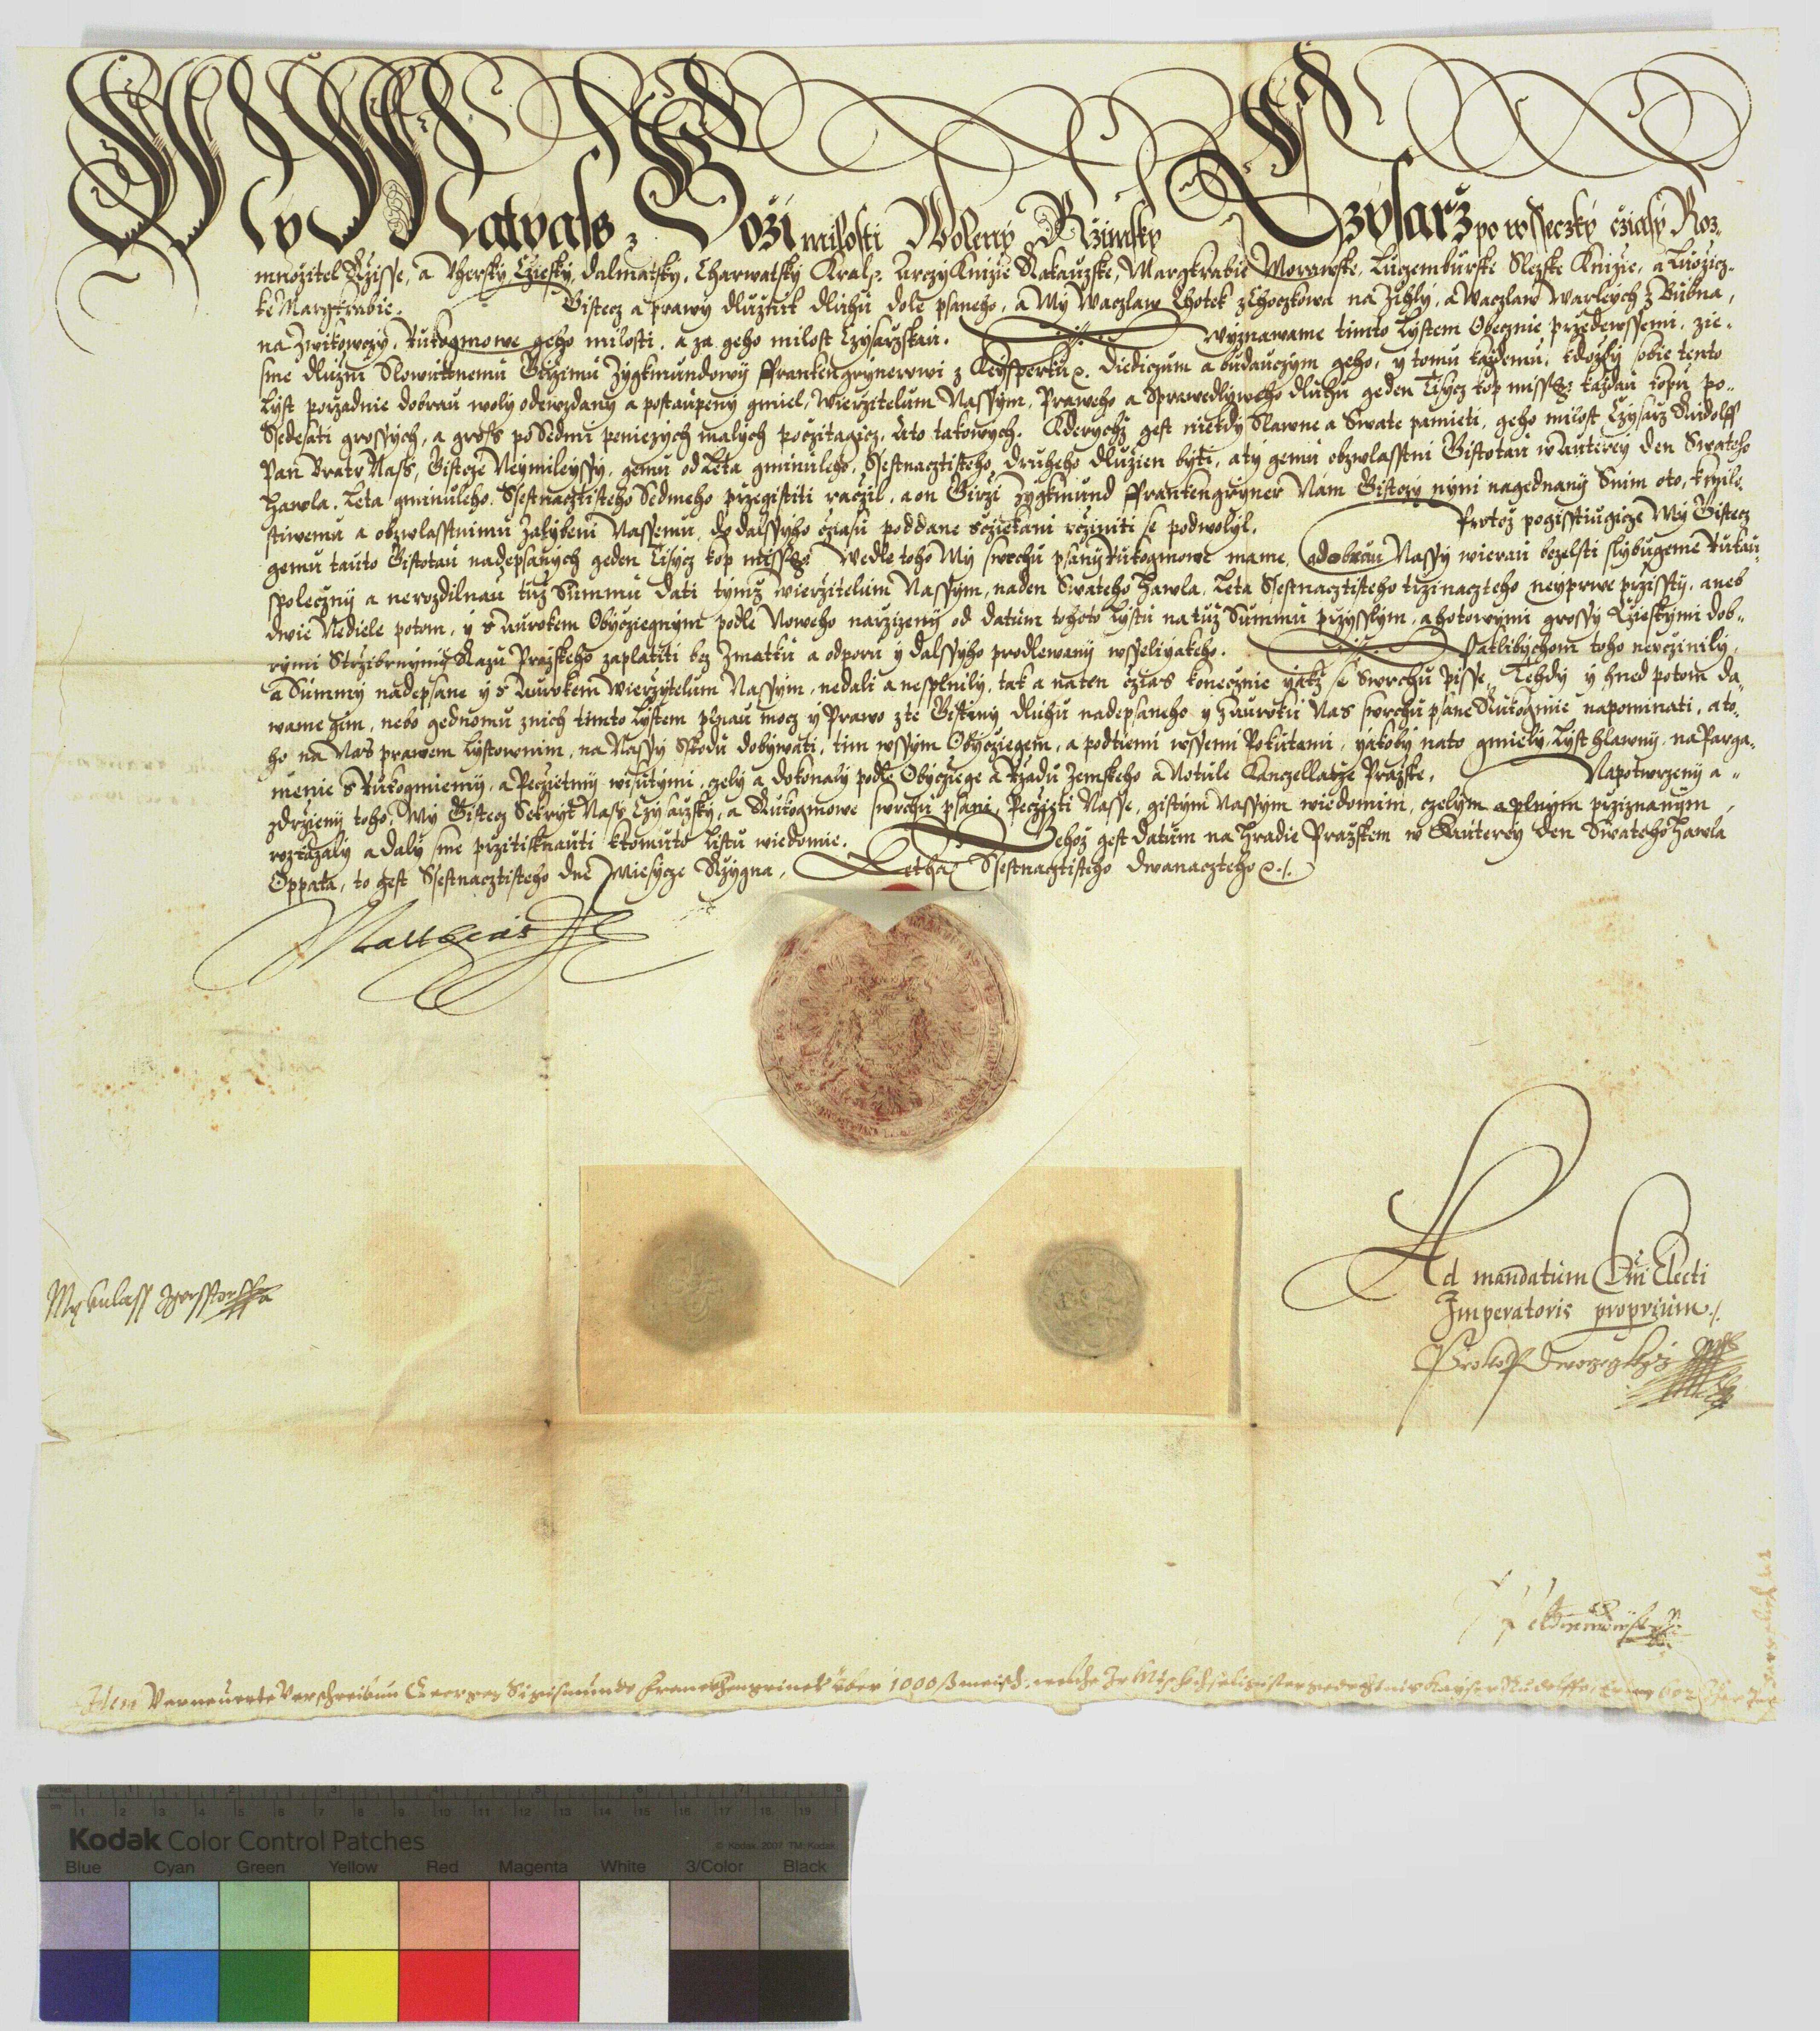 My Matyass z Boží milosti WolenýRžimský Czysarž po wsseczky cziasy Roz-
množitel Ržisse, a Uherský Cžieský, Dalmatský, Charwatský Kral ꝛc. Arczy Kniže Rakauzske, Margkrabie Morawske, Luczemburske Slezske Kniže, a Lužicz-
ke Margkrabie. Gistecz a prawý dlužnik dluhu dole psaneho, a My Waczlaw Chotek z Choczkowa na Zihly, a Waczlaw Warleych z Bubna,
na Zwikowczy, Rukogmowe geho milosti, a za geho milost Czysarzskau. Wyznawame timto Lystem Obecznie przedewssemi, zie
sme dlužni Slowutnemu Girzimu Zygkmundowy Ffrankengrynerowi z Keysperku ꝛc. Diediczum a buduczym geho, y tomu každemu, kdožby sobie tento
Lyst porzadnie dobrau woly odewzdany a postaupeny gmiel, Wierzitelum Nassym, Praweho a Sprawedlyweho dluhu geden Tisycz kop miss: každau kopu po-
Ssedesati grossych, a gross po Sedmi peniezych malych pocžitagicz. A to takowych. Kderychž gest niekdy Slawne a Swate pamieti, geho milost Czysarz Rudolff
Pan Bratr Nass, Gistcze Neymileyssy, gemu od Leta gminuleho, Ssestnacztisteho druheho dlužien byti, a ty gemu obzwlasstni Gistotau w Auterey den Swateho
Hawla, Leta gminuleho Ssestnacztisteho Sedmeho przegistiti racžil, a on Girzi Zygkmund Ffrankengryner Nam Gistczy nyni nagednany Snim oto, k milo-
stiwemu a obzwlasstnimu Zalybeni Nassemu, do dalssyho cziasu poddane scžiekani ucžiniti se podwolyl. Protož pogisstiugicze My Gistecz
gemu tauto Gistotau nadepsanych geden Tisycz kop miss: Wedle toho My swrchu psany Rukogmowe mame, a dobrau Nassy wierau bezelsti slybugeme Rukau
spolecžny a nerozdilnau tuž Summu dati tymž wierzitelum Nassym, na den Swateho Hawla, Leta Ssestnacztisteho trzinaczteho neyprwe przissty, aneb
dwie Nedieli potom, y s Aurokem Obycziegnym podle Noweho narzizeny od datum tohoto Lystu na tuž Summu przysslym, a hotowymi grossy Cžieskymi dob-
rymi Strzibrnymi Razu Pražskeho zaplatiti bez Zmatku a odporu y dalssyho prodlewany wsselyakeho. Paklibychom toho neucžinily,
a Summy nadepsane y s Aurokem Wierzytelum Nassym, nedali a nesplnily, tak a na ten cžias konecžnie yakž se Swrchu Pisse, Tehdy y hned potom da-
wame gim, nebo gednomu z nich timto Lystem plnau mocz y Prawo z te Gistiny dluhu nadepsaneho y z auroku Nas swrchu psane Rukogmie napominati, a to-
ho na Nas prawem Lystownim, na Nassy Sskodu dobywati, tim wssym Obycžiegem, a pod tiemi wssemi Pokutami, yakoby na to gmiely Lyst hlawny, na Parga-
menie s Rukogmiemy, a Pecžietmy wisutymi, czely a dokonaly podle Obycžiege a Rzadu Zemskeho a Notule Kanczellarže Pražske. Na potwrzeny a
zdrženy toho, My Gistecz Sekryt Nass Czysarsky, a Rukogmowe swrchu psani, Pecžeti Nasse, gistym Nassym wiedomim, czelym a plnym przyznanym
rozkazaly a daly sme przitisknauti k tomuto Listu wiedomie. Gehož gest datum na Hradie Pražskem w Auterey den Swateho Hawla
Oppata, to gest Ssestnacztisteho dne Miesycze Ržygna, Letha Ssestnacztisteho dwanaczteho ꝛc.
Matthias
Ad mandatum Dni Electi
Imperatoris proprium
Mykulass Gerstorff
Prokop Dworzeczky
Item Verneuerte Verschreibun Georgen Sigismunds Franckhengrineß über 1000 ß meisch: welche Ir Mt: hochseligister gedechtnis Kayser Rudolffs
Kodak Color Control Patches
© Kodak, 2007 TM: Kodak
Blue Cyan Green Yellow Red Magenta White 3/Color Black